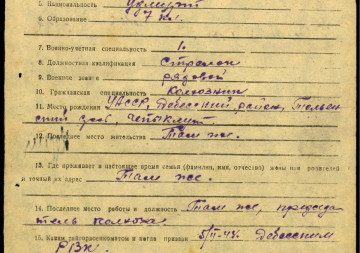 5. Национальность удмурт
6. Образование 7 кл.
7. Военно-учетная специальность 1.
8. Должностная квалификация Стрелок
9. Военное звание рядовой
10. Гражданская специальность Колхозник
11. Место рождения УАССР, Дебесский район,
12. Последнее место жительства Там же.
13. Где проживает в настоящее время семья (фамилия, имя, отчество) жены или родителей
и точный их адрес Там же.
14. Последнее место работы и должность Там же, председа-
тель колхоза.
15. Каким райгорвоенкоматом и когда призван Дебесским
РВК.